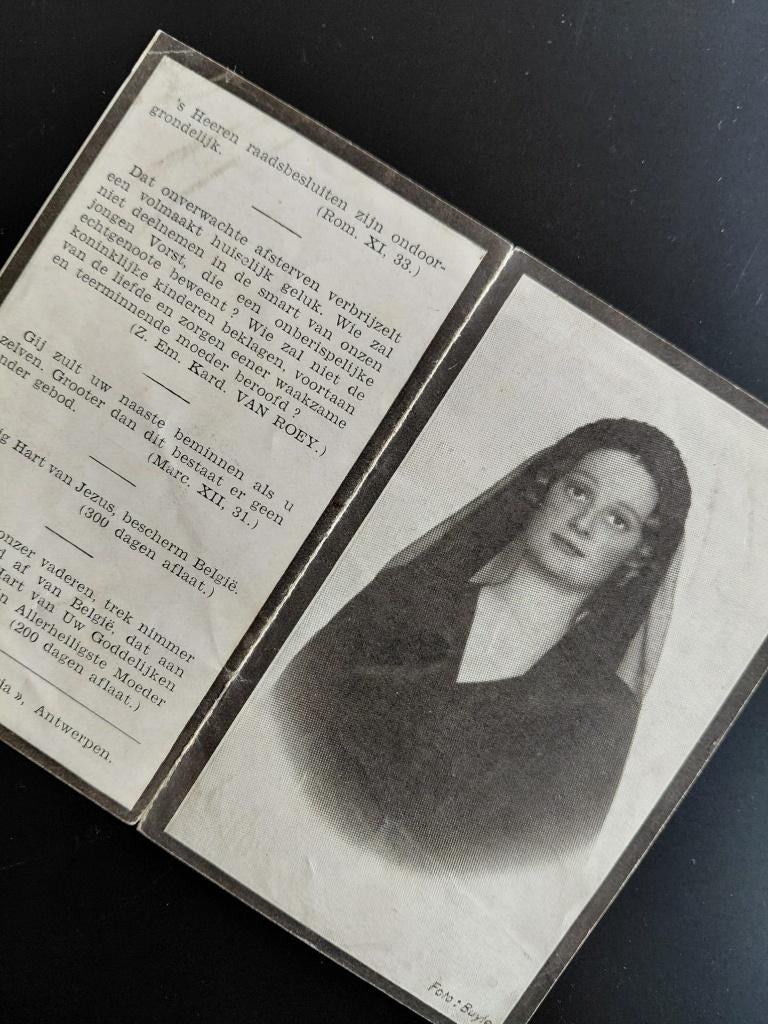 's Heeren raadsbesluiten zijn ondoor-
grondelijk.
(Rom. XI, 33.)
Dat onverwachte afsterven verbrijzelt
een volmaakt huiselijk geluk. Wie zal
niet deelnemen in de smart van onzen
jongen Vorst, die een onberispelijke
echtgenoote beweent? Wie zal niet de
koninklijke kinderen beklagen, voortaan
van de liefde en zorgen eener waakzame
en teerminnende moeder beroofd?
(Z. Em. Kard. VAN ROEY.)
Gij zult uw naaste beminnen als u
zelven. Grooter dan dit bestaat er geen
ander gebod.
(Marc. XII, 31.)
Hart van Jezus, bescherm België.
(300 dagen aflaat.)
onzer vaderen, trek nimmer
af van België, dat aan
Hart van Uw Goddelijken
Allerheiligste Moeder
(200 dagen aflaat.)
», Antwerpen.
Foto: Buyle